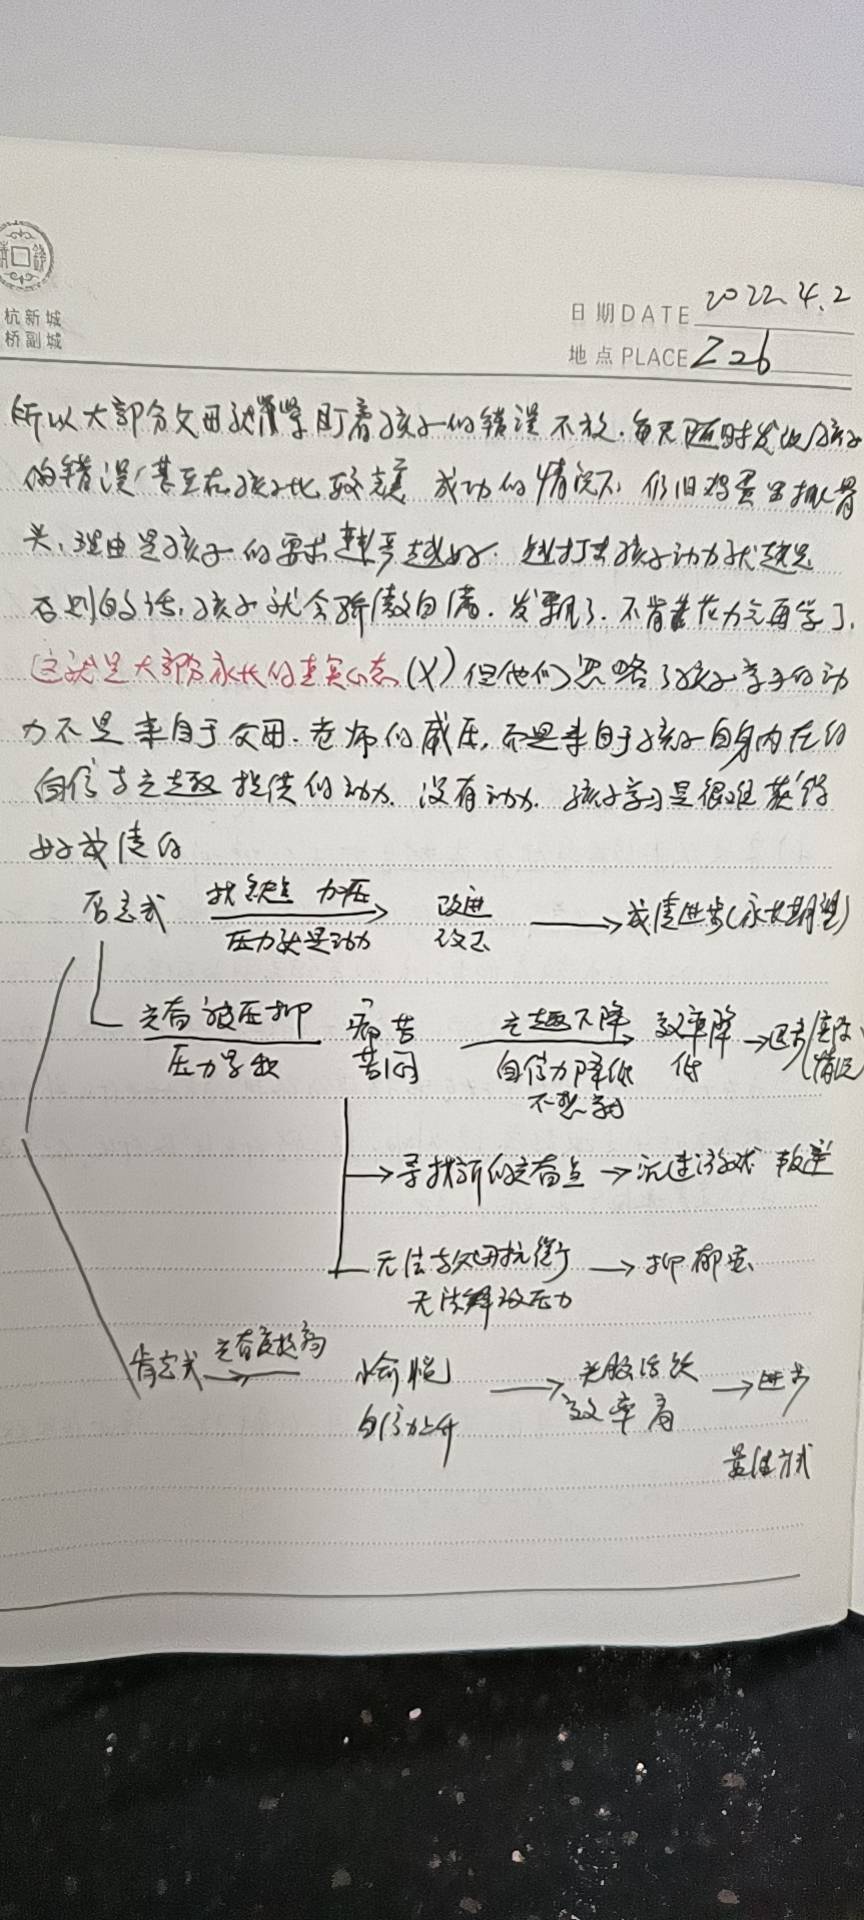 杭新城
桥副城
日期DATE 2022.4.2
地点PLACE Z26
所以大部分父母就常常盯着孩子的错误不放.每天随时发现孩子
的错误(甚至在孩子比较 成功的情况下 仍旧鸡蛋里挑骨
头.理由是孩子的要求越严越好.越打击孩子动力就越足
否则的话,孩子就会骄傲自满.发飘了.不肯花力气再学了.
这就是大部分家长的真实心态(X)但他们忽略了孩子学习的动
力不是来自于父母.老师的威压,而是来自于孩子自身内在的
自信与兴趣提供的动力.没有动力.孩子学习是很难获得
好成绩的
否定式 找缺点 加压 改进 成绩进步(家长期望)
压力就是动力 改正
兴奋被压抑 痛苦 兴趣下降 效率降 退步(实际
压力导致 苦闷 自信力降低 低 情况
不想学习
寻找新的兴奋点 沉迷游戏 叛逆
无法与父母抗衡 抑郁症
无法释放压力
肯定式 兴奋度提高 愉悦 头脑活跃 进步
自信力上升 效率高
最佳方式